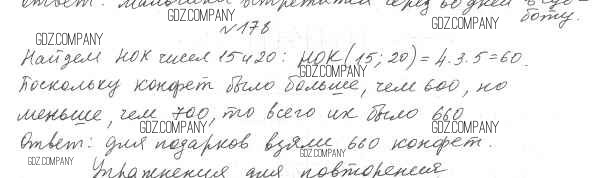 Ответ: мальчики встретятся через 60 дней в суб-
боту.
GDZ.COMPANY
№ 178
GDZ.COMPANY
GDZ.COMPANY
Найдем НОК чисел 15 и 20: НОК(15; 20) = 4·3·5=60.
GDZ.COMPANY
Поскольку конфет было больше, чем 600, но
меньше, чем 700, то всего их было 660
GDZ.COMPANY
GDZ.COMPANY
Ответ: для подарков взяли 660 конфет.
GDZ.COMPANY
GDZ.COMPANY
Упражнения для повторения